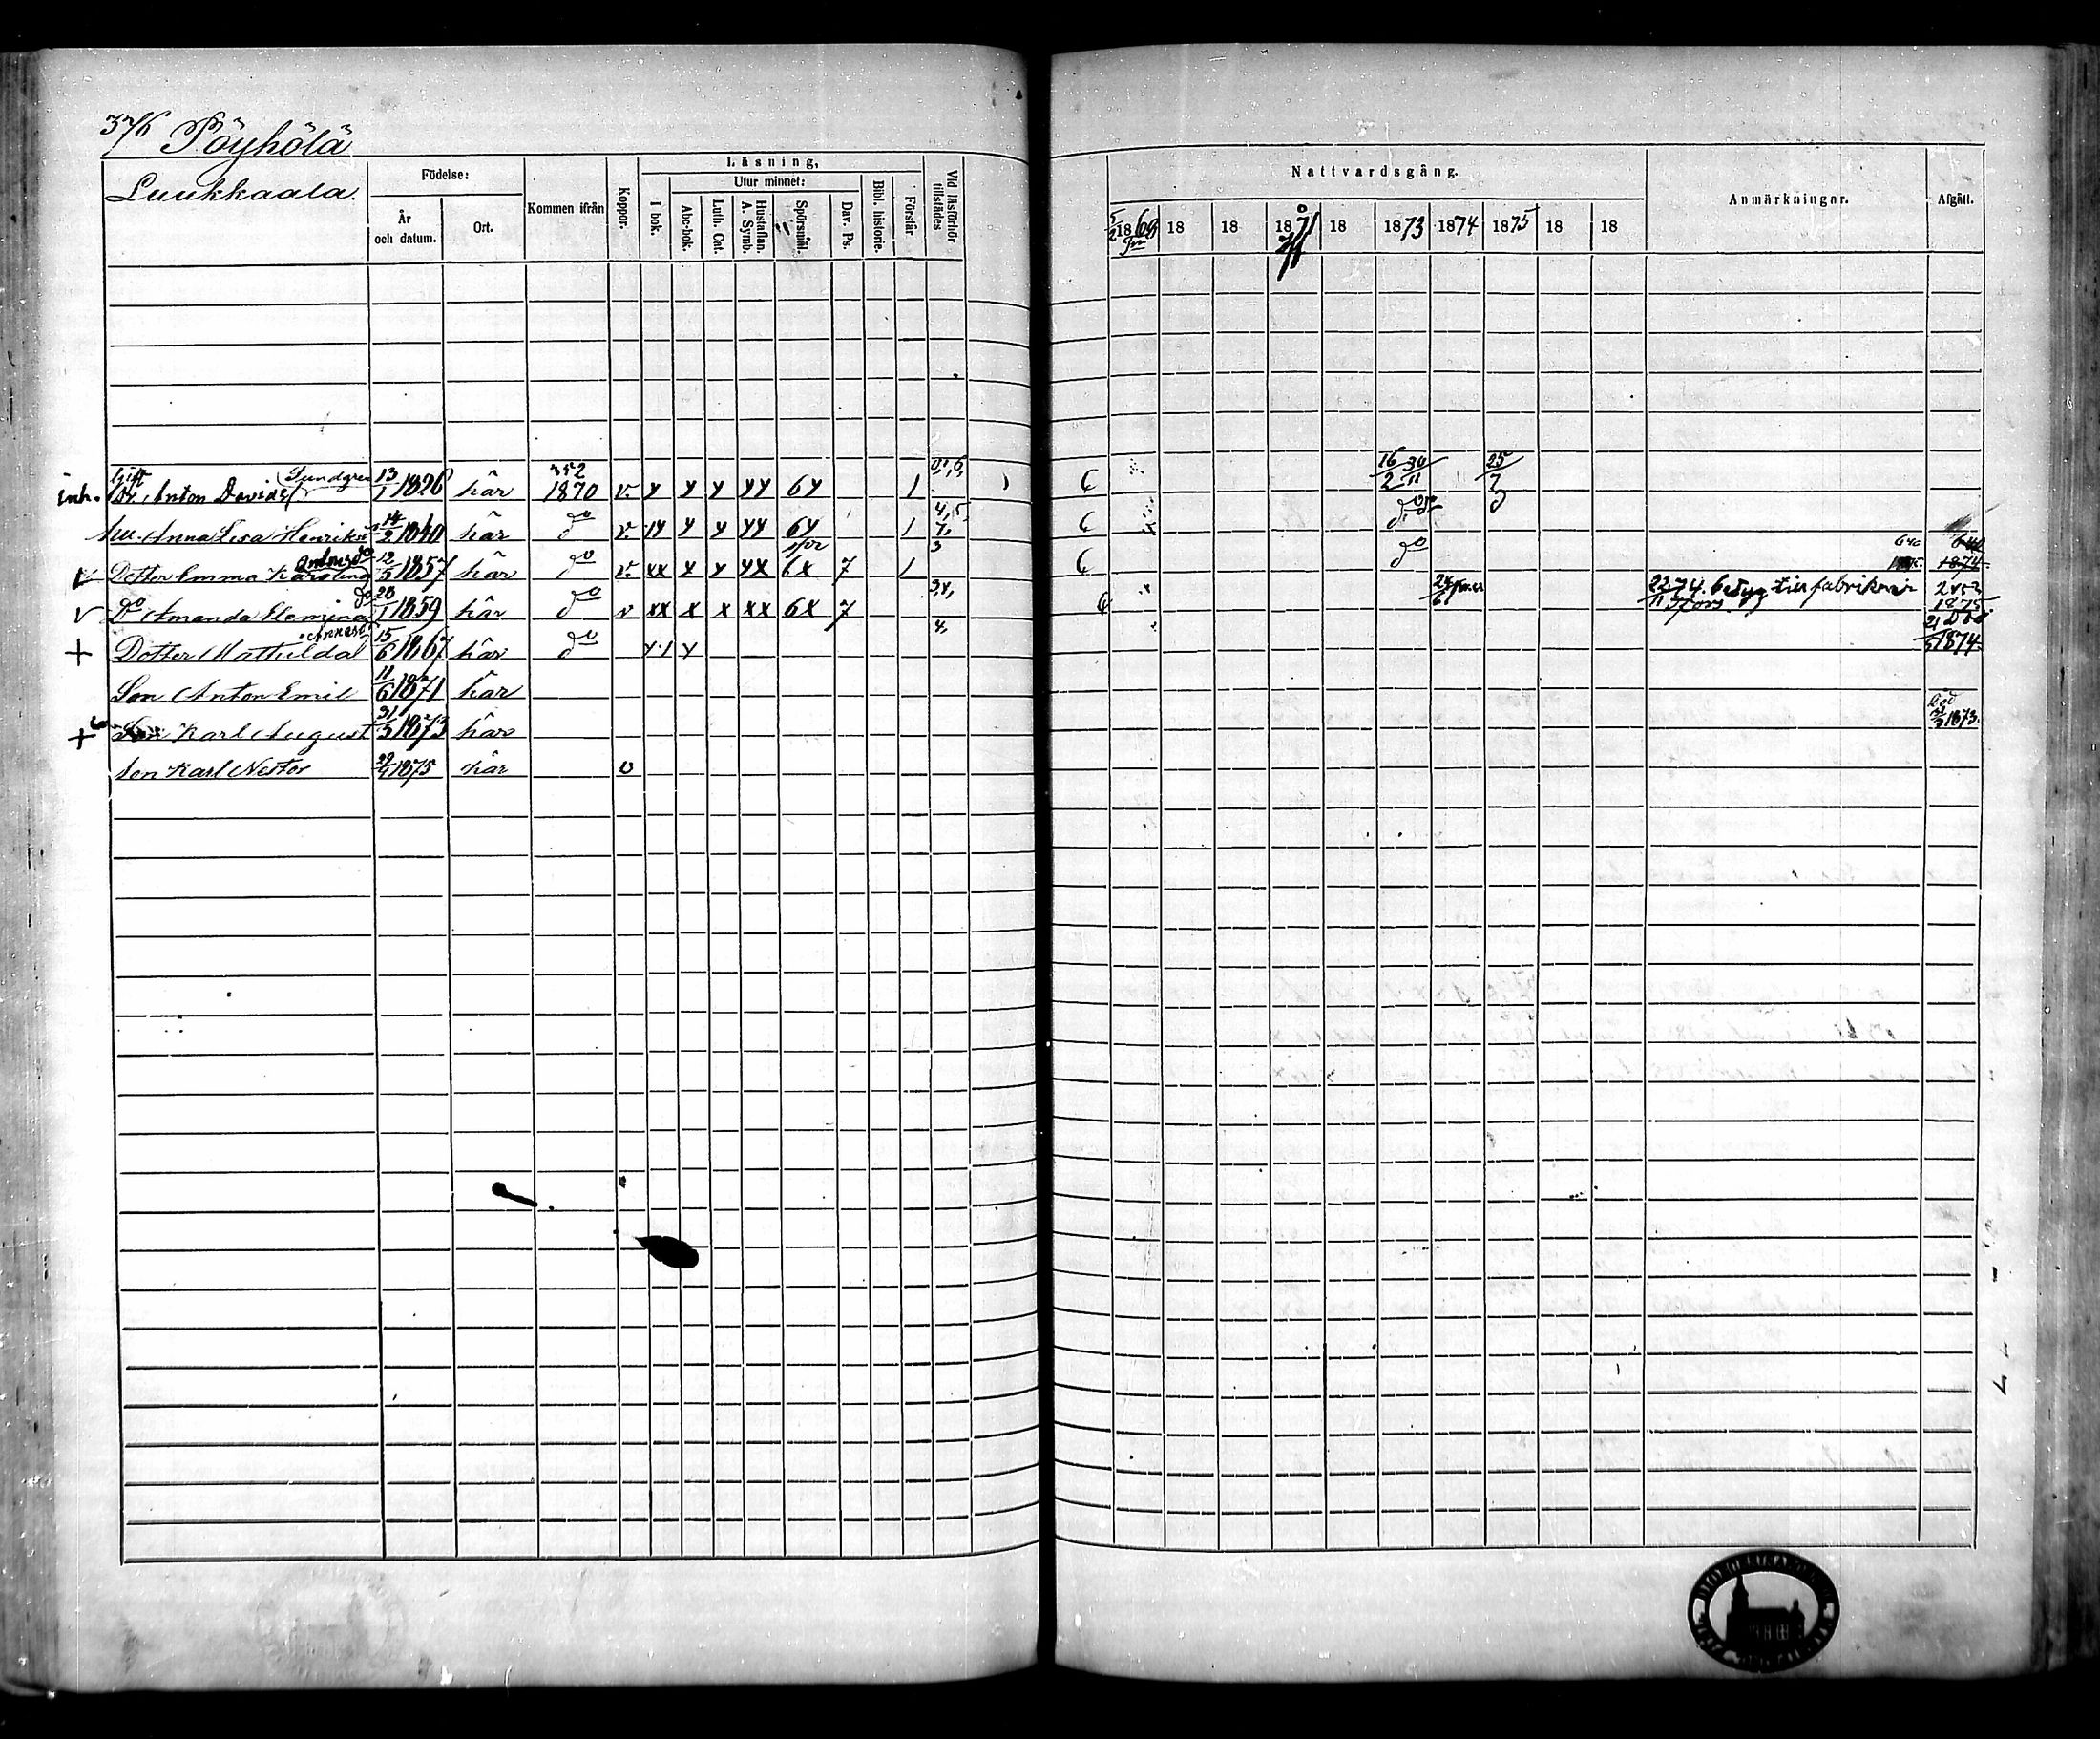 376 Pöyhölä
Luukkaala.
Födelse:
År och datum.
Ort.
Kommen ifrån
Koppor.
Läsning,
I bok.
Utur minnet:
Abc-bok.
Luth. Cat.
Hustaflan. A. Symb.
Spörsmål.
Dav. Ps.
Bibl. historie.
Förstår.
Vid läsförhör tillstädes
Nattvardsgång.
1869 18 18 1871 18 1873 1874 1875 18 18
Anmärkningar.
Afgått.
inh. Gift Dr. Anton Davids Sundgren 13/1 1826 här 352 1870 v. y y y yy 6y 1 16/2 30/11 25/7
hu. Anna Lisa Henriksd 14/2 1840 här do v. 1y y y yy 6y 1 4,5, 7, do
Dotter Emma Karolina Antonsdo 12/5 1857 här do v. xx x y yx 6x 7 1 3 do 640 1875. 640 1874
Do Amanda Elemina do 20/1 1859 här do v xx x x xx 6x 7 3,4, 24/6 22/11 74. betyg till fabriken i Fors 1875
+ Dotter Mathilda 15/6 1867 här do y1 y 4, 21 Död 1874.
Son Anton Emil 11/6 1871 här
+ Son Karl August 31/3 1873 här Död 1873.
Son Karl Nestor 29/4 1875 här v